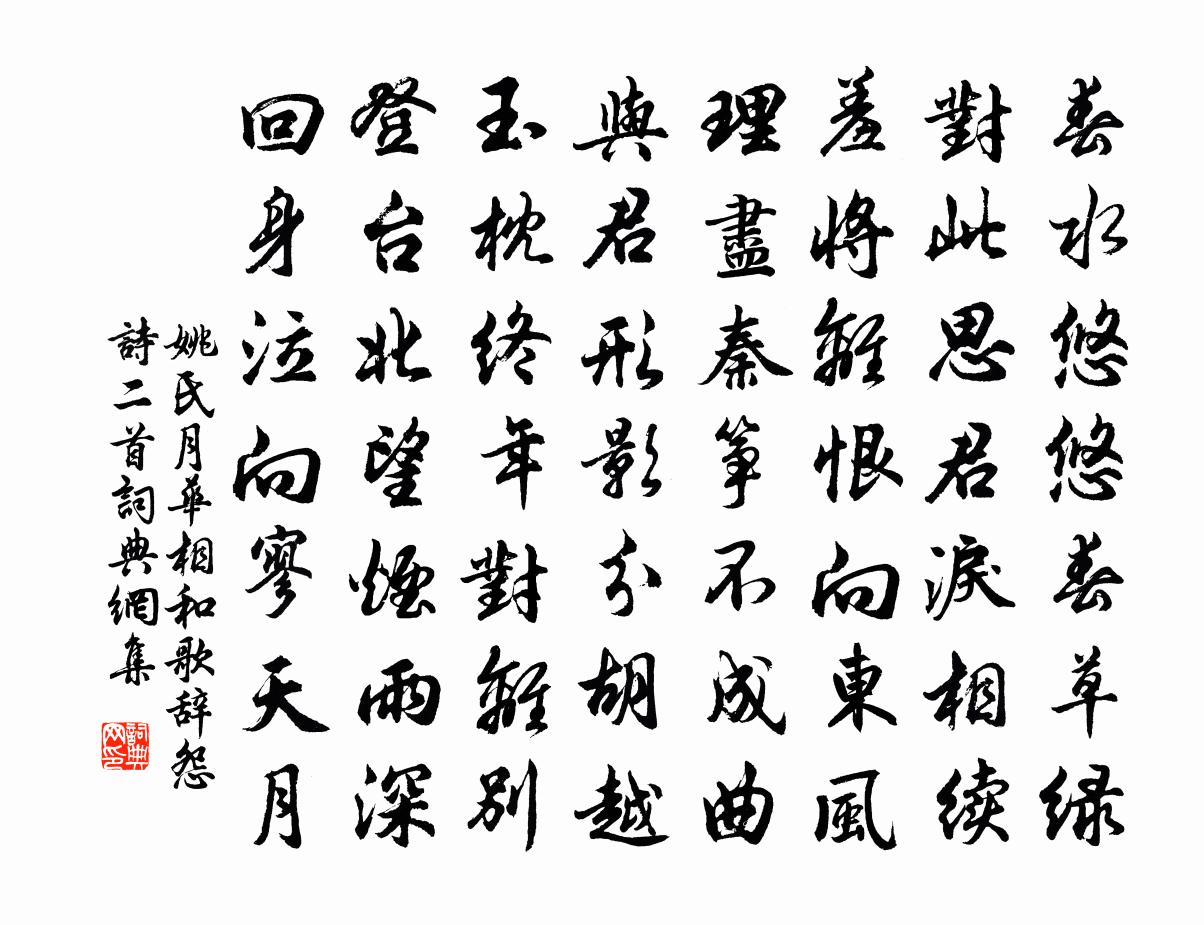 春水悠悠春草绿
對此思君淚相续
羞將離恨向東風
理盡秦箏不成曲
與君形影分胡越
玉枕终年對離别
登台北望煙雨深
回身泣向寥天月
姚氏月華相和歌辞怨
詩二首詞典網集
詞典
网印